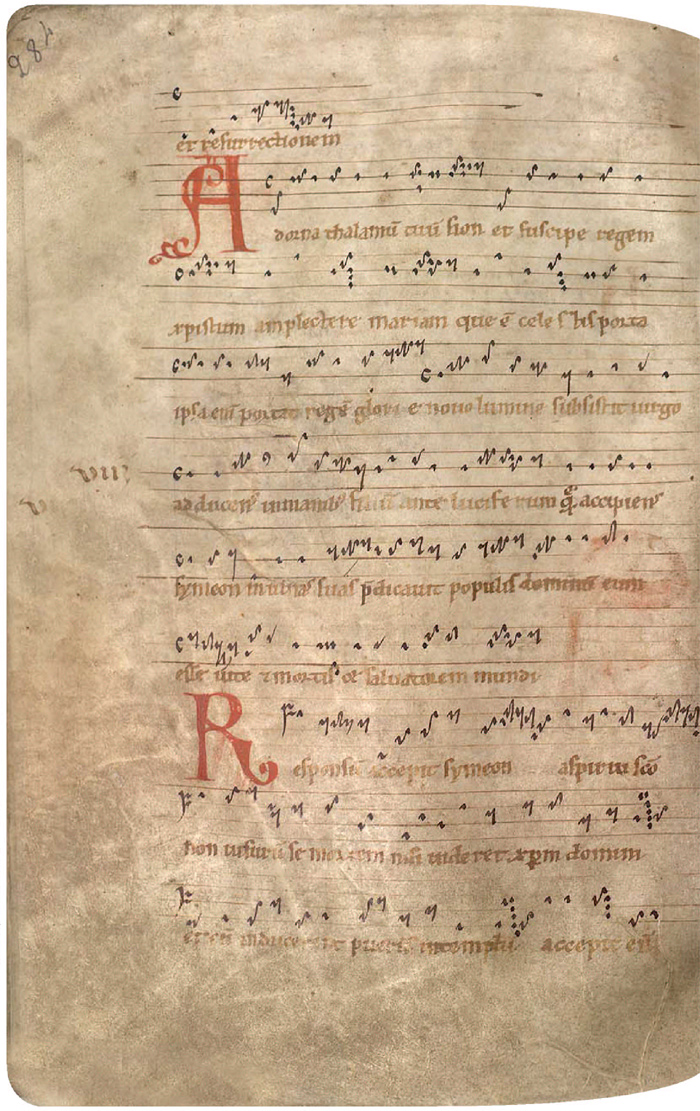 284
et resurrectionem
Adorna thalamū tuū sion et suscipe regem
xpistum amplectere mariam que ē celestis porta
ipsa eni portat regē glorie nouo lumine subsistit uirgo
adducens inmanib filiū ante luciferum quē accipiens
VIII
symeon in ulnas suas p̄dicauit populis dominū eum
esse uite & mortis et saluatorem mundi
Responsū accepit symeon aspiritu scō
non uisurū se mortem nisi uideret xp̄m domini
et cū inducerent puerū intemplū accepit eū